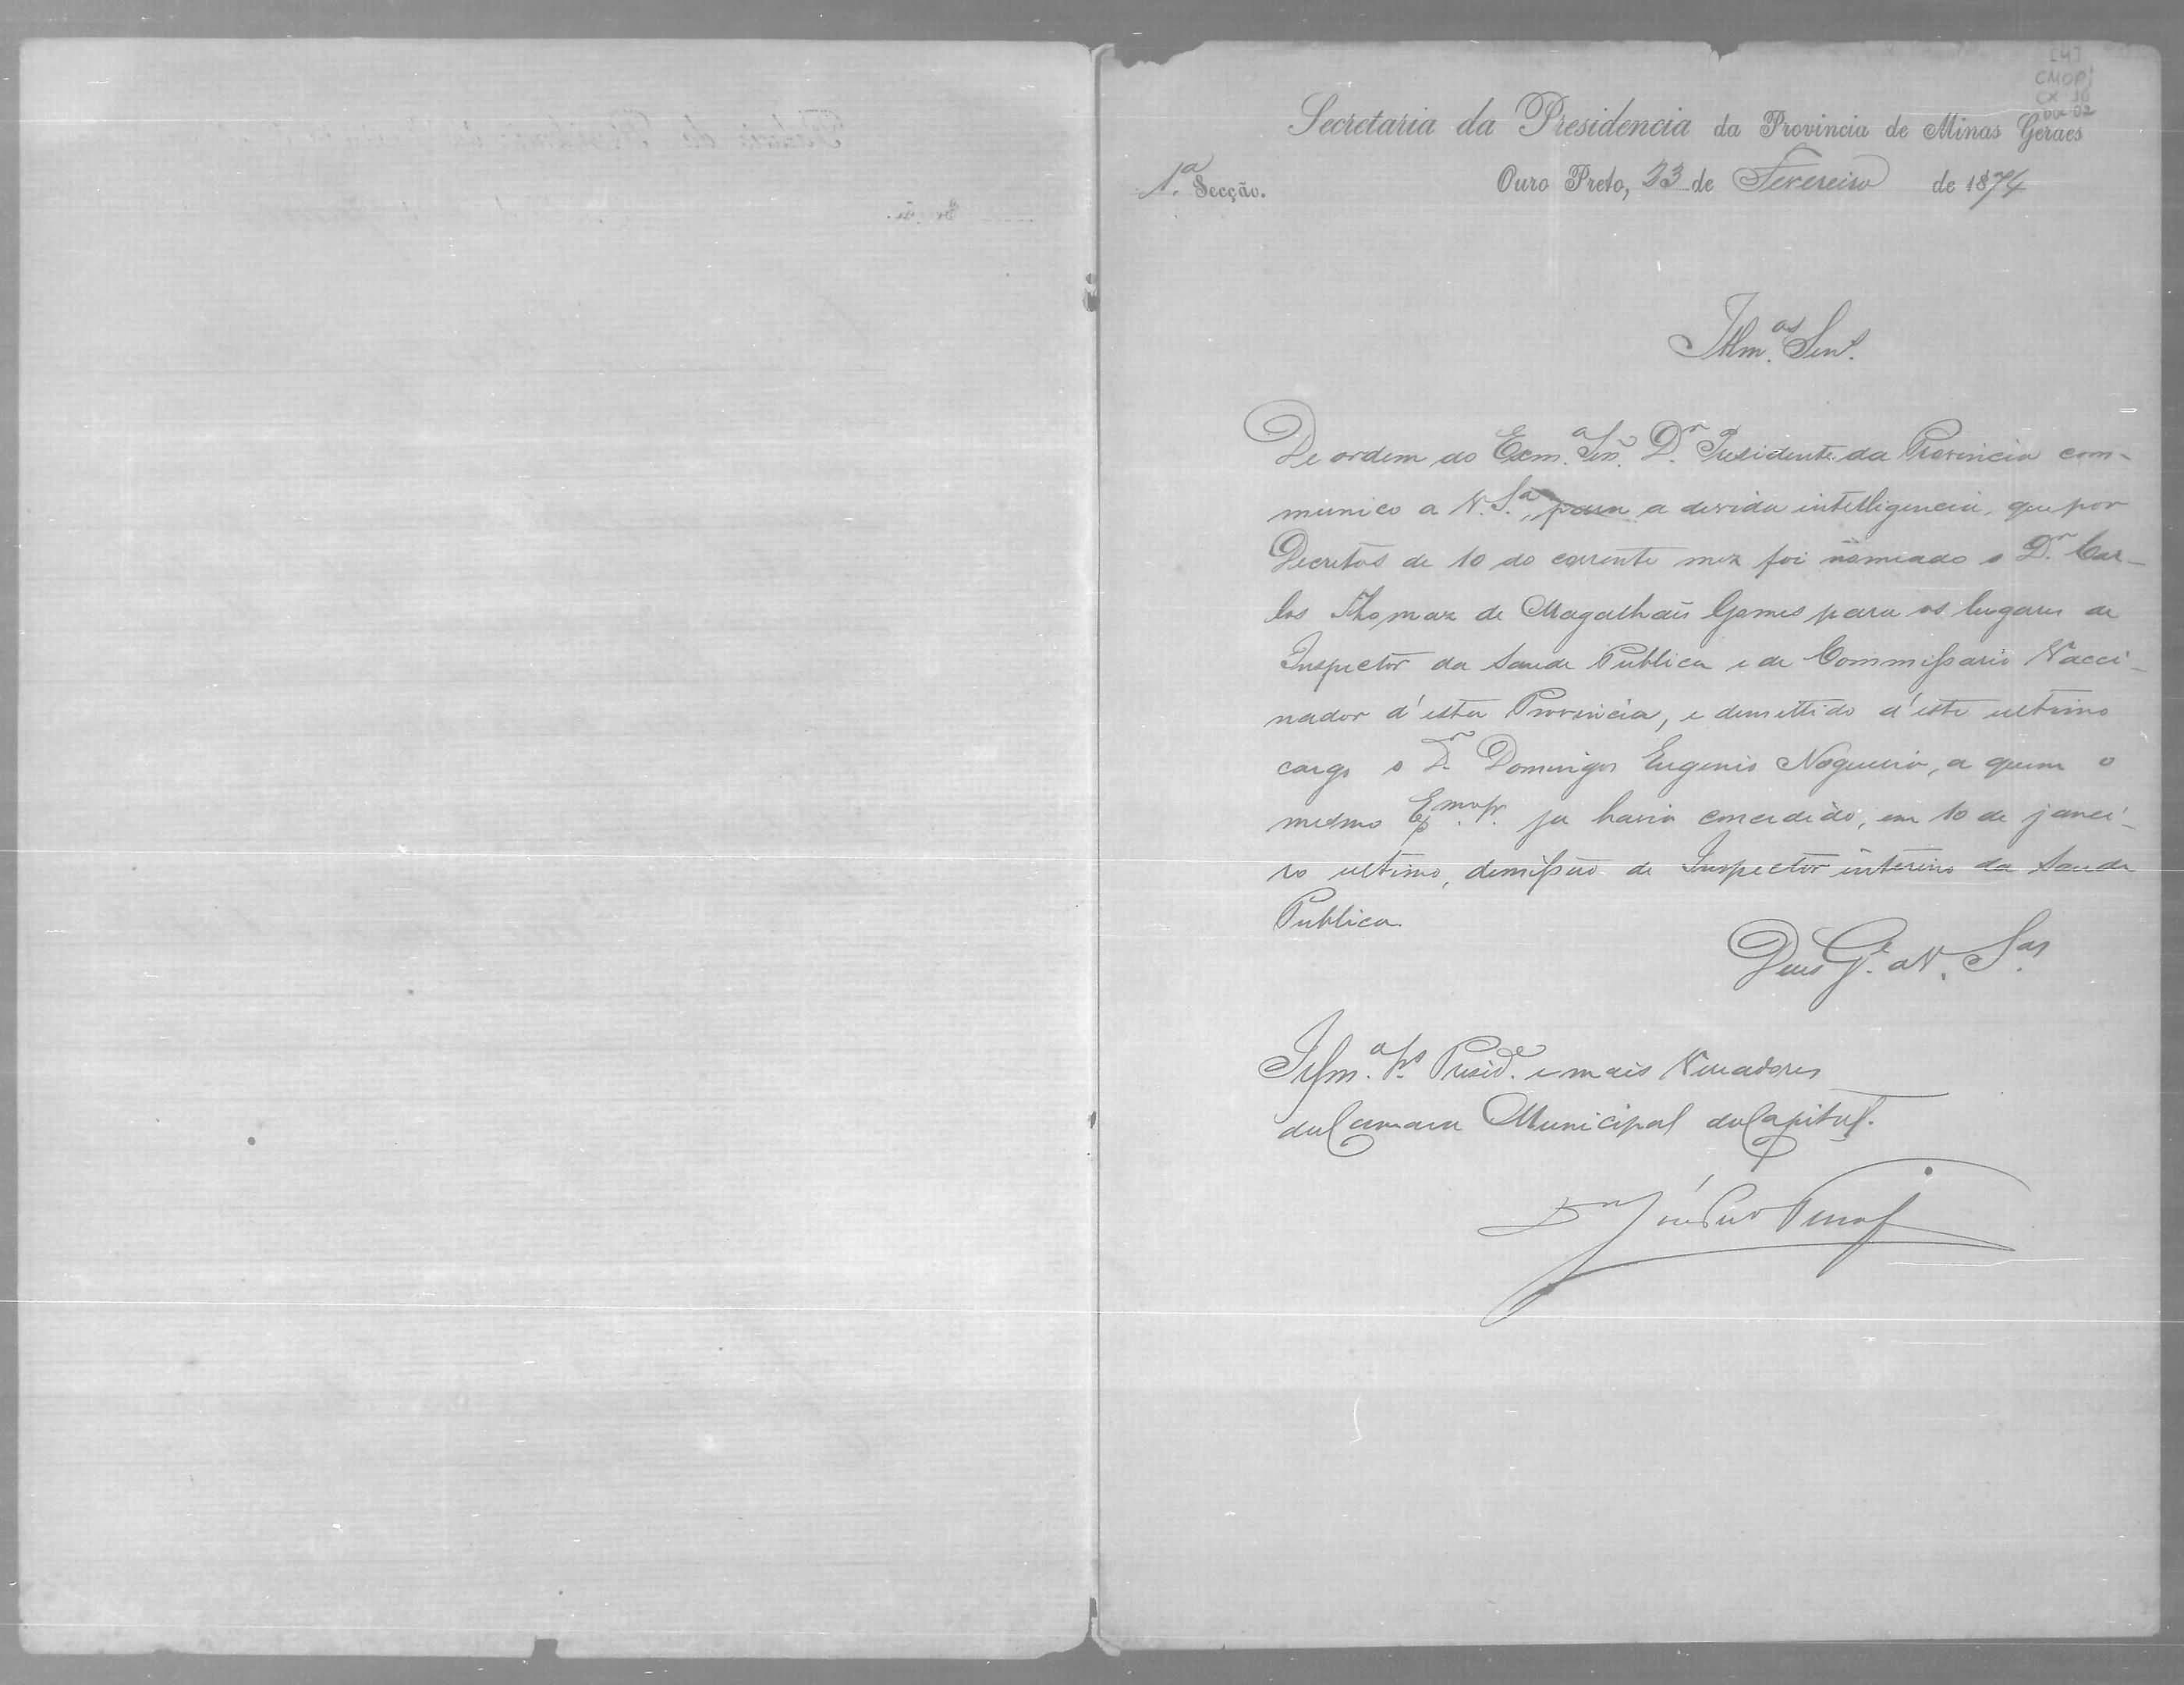 CMOP
CX 16
Doc 02
Secretaria da Presidencia da Provincia de Minas Geraes
1.ª Secção.
Ouro Preto, 23 de Fevereiro de 1874
Illm.os Senr.
De ordem do Exm.o Sñr. D.r Presidente da Provincia com-
munico a V. S.as, para a devida intelligencia, que por
Decretos de 10 do corrente mez foi nomeado o D.r Car-
los Thomaz de Magalhaẽs Gomes para os lugares de
Inspector da Saude Publica e de Commissario Vacci-
nador d'esta Provincia, e demettido d'este ultimo
cargo o D.r Domingos Eugenio Nogueira, a quem o
mesmo Exmo Sr. ja havia concedido, em 10 de janei-
ro ultimo, demissão de Inspector interino da Saude
Publica.
Deus G.e a V. S.as
Illm.os Srs Presid.e e mais Vereadores
da Camara Municipal da Capital.